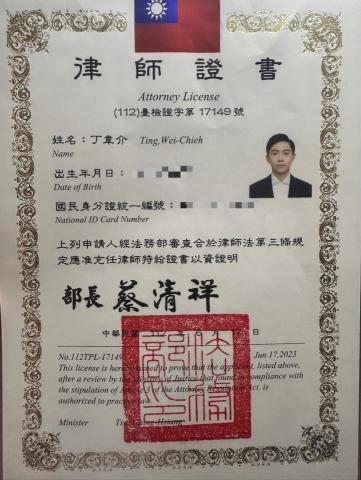 律師證書
Attorney License
(112)臺檢證字第 17149 號
姓名：丁韋介 Ting,Wei-Chieh
Name
出生年月日：
Date of Birth
國民身分證統一編號：
National ID Card Number
上列申請人經法務部審查合於律師法第三條規
定應准充任律師特給證書以資證明
部長 蔡清祥
中華民國 月 日
No.112TPL-17149 Jun 17,2023
This license is hereby issued to prove that the applicant, listed above,
after a review by the Ministry of Justice that found in compliance with
the stipulation of Art. 3 of the Attorney Act, is
authorized to practice law.
Minister Tsai, Ching-Hsiang
法務部印